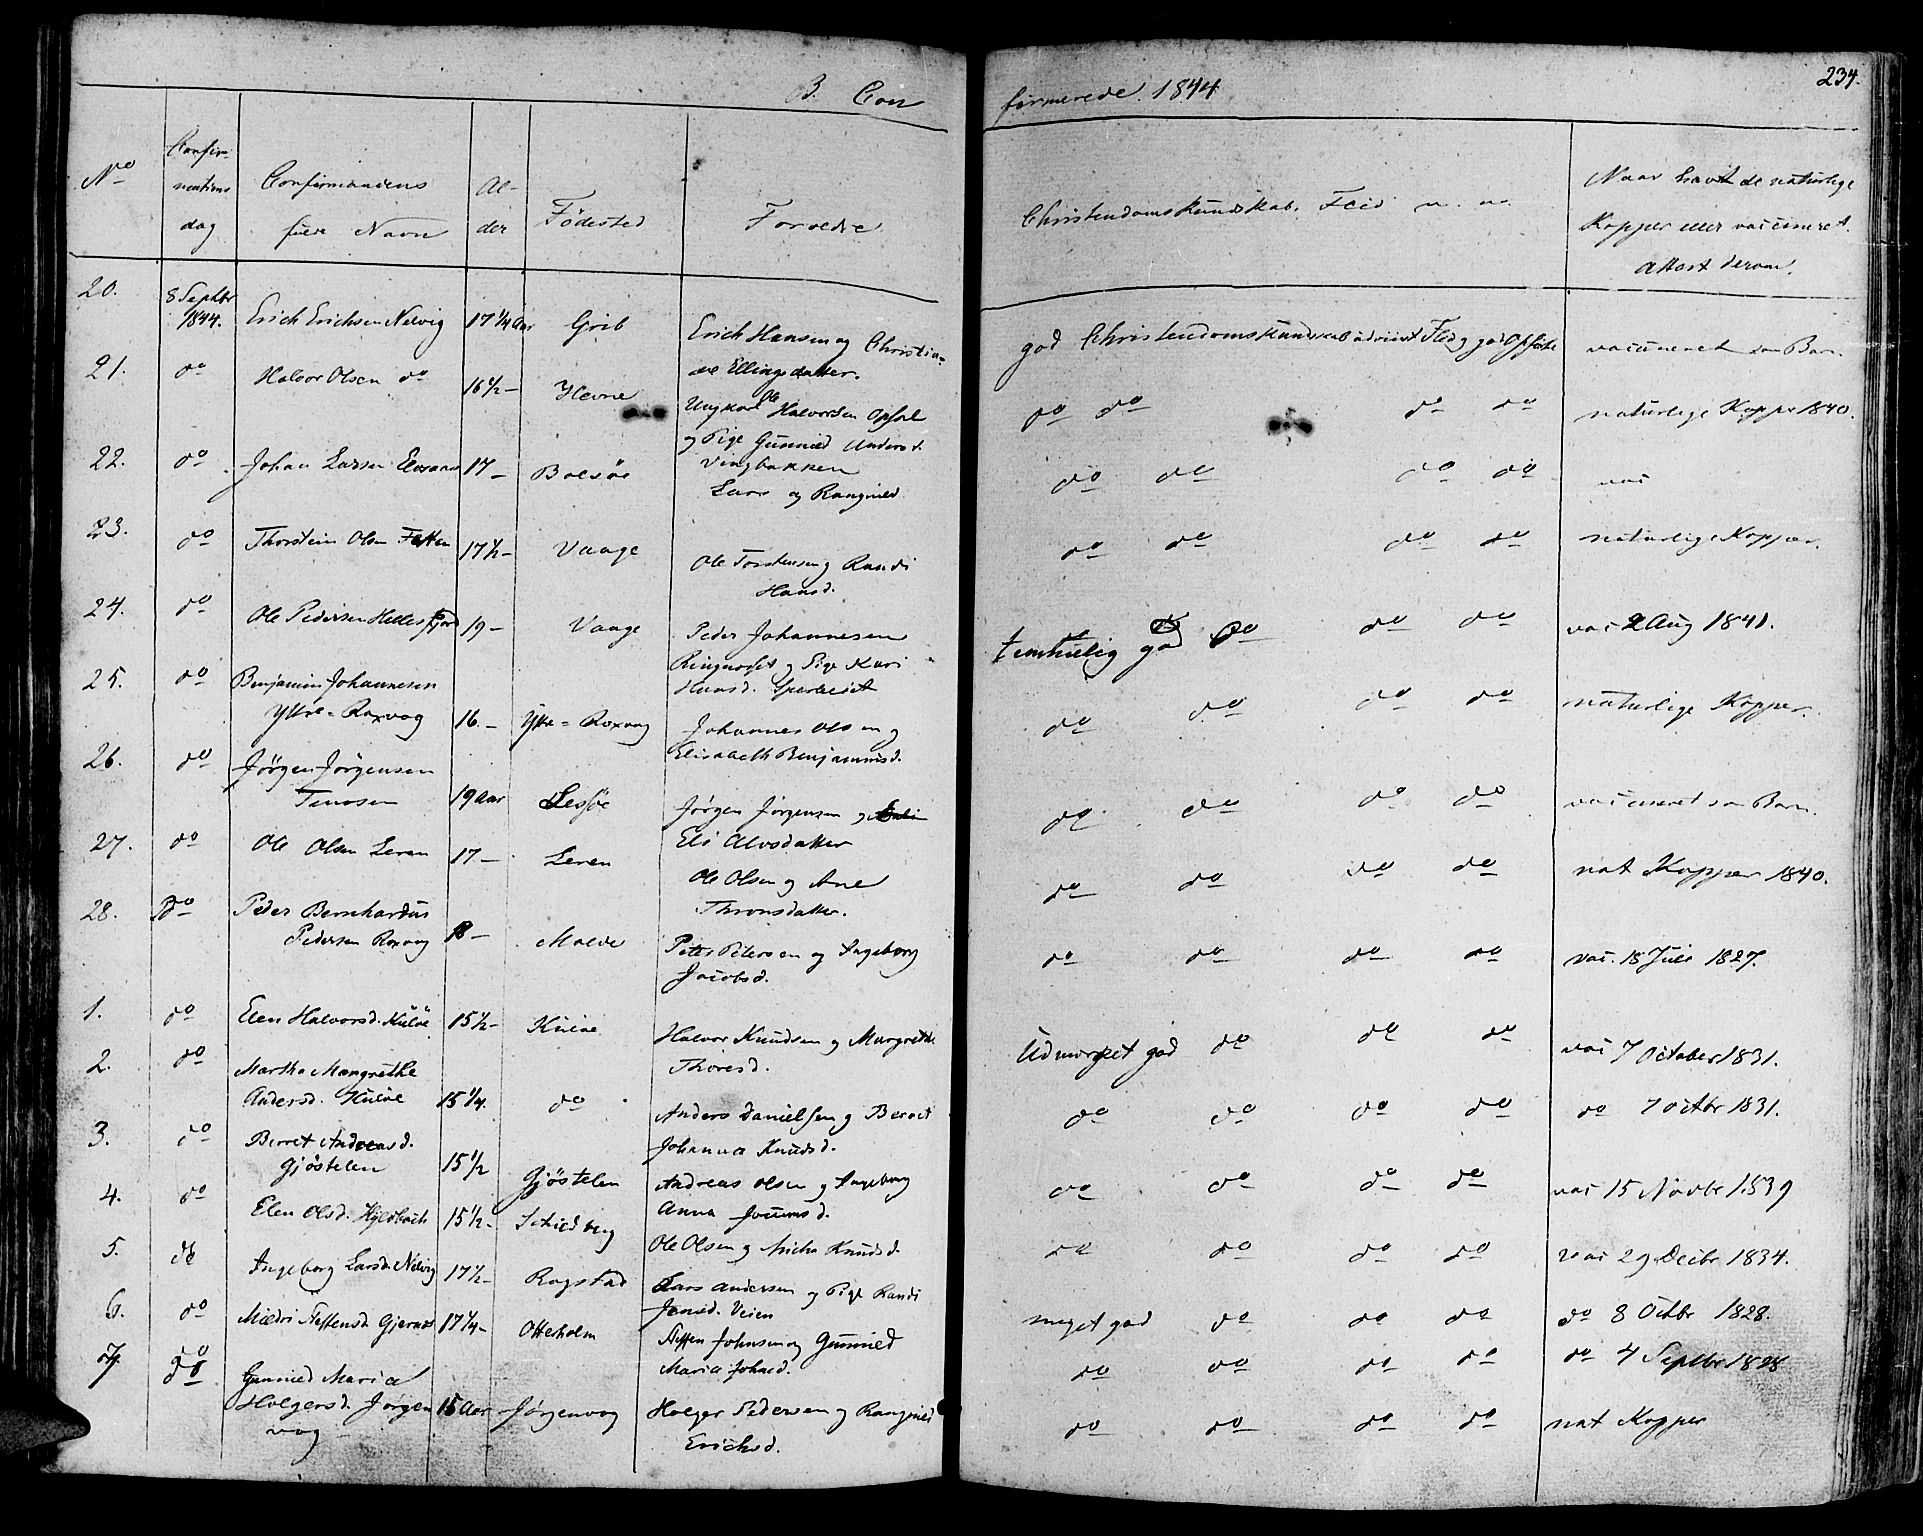 B. Con
firmerede. 1844
234.
No
Confir-
mations
dag
Confirmandens
fulde Navn
Al-
der
Fødested
Forældre
Christendomskundskab, Flid m. m.
Naar havt de naturlige
Kopper eller vaccineret.
Attest derom.
20. 8 Septbr 1844. Erich Erichsen Nelvig 17 1/4 Aar Grib Erich Hansen og Christia-
ne Ellingsdatter. god Christendomskundskab udviist Flid og god Opførsel vaccineret som Barn.
21. do Halvor Olsen do 16 1/2 - Hevne Ungkarl Ole Halvorsen Opsal
og Pige Gunnild Andersd.
Vingbakken do do do do naturlige Kopper 1840.
22. do Johan Larsen 17 - Bolsöe Lars og Rangnild do do do do vac
23. do Thorstein Olsen 17 1/2 - Vaage Ole Torstensen og Randi
Hansd. do do do do naturlige Kopper.
24. do Ole Pedersen Hellesfjord 19 - Vaage Peder Johannesen
Ringnæsset og Pige Kari
Hansd. temmelig god do do do vac 2 Aug 1841.
25. do Benjamin Johannesen
Yttre-Roxvog 16. - Yttre-Roxvog Johannes Olsen og
Elisabeth Benjaminsd. do do do do naturlige Kopper.
26. do Jørgen Jørgensen
19 Aar Lessøe Jørgen Jørgensen og
Eli Alvsdatter do do do do vaccineret som Barn.
27. do Ole Olsen Leren 17 - Leren Ole Olsen og Ane
Thronsdatter. do do do do nat Kopper 1840.
28. do Peder Bernhardus
Pedersen Roxvog 18 - Molde Peter Petersen og Ingeborg
Jacobsd. do do do do vac. 18 Juli 1827.
1. do Elen Halvorsd. Kulöe 15 1/2 - Kulöe Halvor Knudsen og Margrethe
Thoresd. Udmærket god do do do vac 7 October 1831.
2. do Martha Mangrethe
Andersd. Kulöe 15 1/4. do Anders Danielsen og Beret
Johanna Knudsd. do do do do do 7 octbr 1831.
3. do Berret Andreasd.
Gjöstelen 15 1/2 Gjöstelen Andreas Olsen og Ingeborg
Anna do do do do vac 15 Novbr 1839
4. do Elen Olsd. 15 1/2 - Ole Olsen og Knudsd. do do do do vac 29 Decbr 1834.
5. do Ingeborg Larsd. Nelvig 17 1/2 - Rogstad Lars Andersen og Pige Randi
Jensd. Veien meget god do do do do 8 Octbr 1828.
6. do Steffensd. Gjernæs 17 1/4 - Otterholm Steffen Johnsen og Gunnild
Maria Johnsd. do do do do do 4 Septbr 1828
7. do Gunnild Maria
Holgersd. Jørgen
vog 15 Aar Jørgenvog Holger Pedersen og Rangnild
Erichsd. do do do do nat Kopper